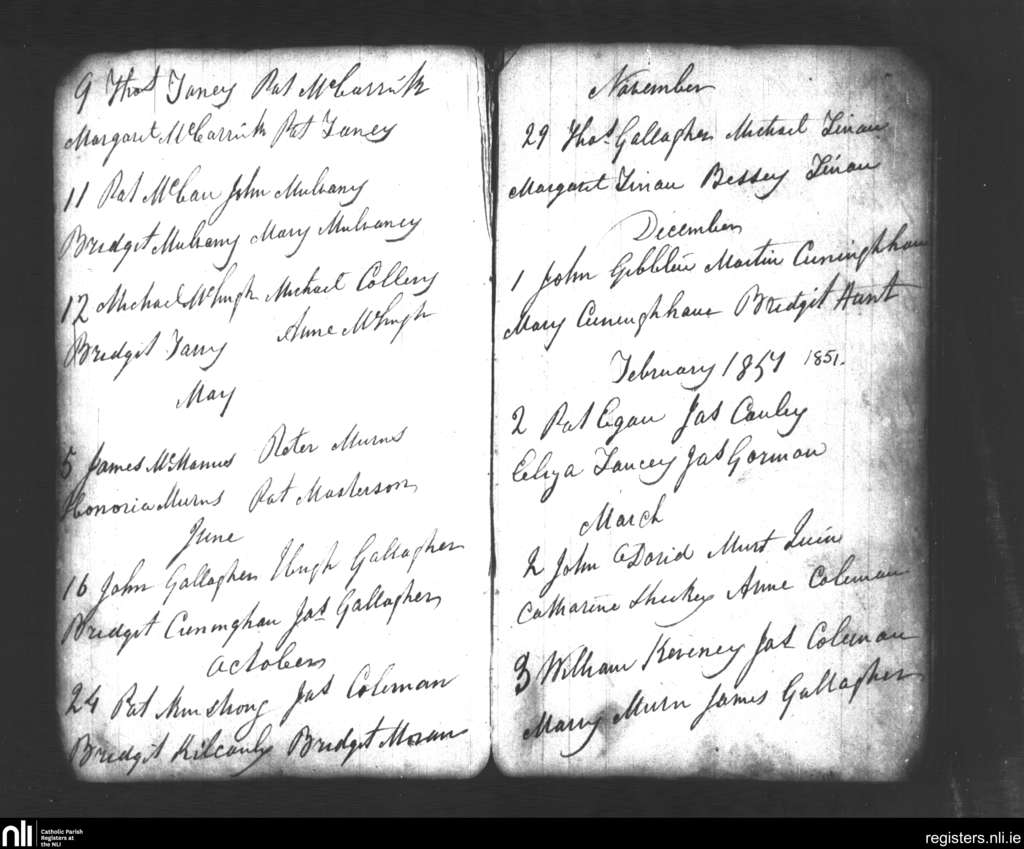 9 Thos Taney Pat McCarrick
Margaret McCarrick Pat Taney
11 Pat McCan John Mulvany
Bridget Mulvany Mary Mulvaney
12 Michael McHugh Michael Collery
Bridget Tany Anne McHugh
May
5 James McManus Peter Murns
Honoria Murns Pat Masterson
June
16 John Gallagher Hugh Gallagher
Bridget Cuninghan Jas Gallagher
October
24 Pat Armstrong Jas Coleman
Bridgit Kilcauly Bridget Moran
November
29 Thos Gallagher Michael Finan
Margaret Finan Bessey Finan
December
1 John Gibblin Martin Cuninghham
Mary Cuninghham Bridgit Hunt
February 1851 1851.
2 Pat Egan Jas Cauley
Eliza Jas Gorman
March
2 John Murt Quin
Catharine Sheekey Anne Coleman
3 William Keveney Jas Coleman
Marry Murn James Gallagher
nli Catholic Parish
Registers at
the NLI
registers.nli.ie